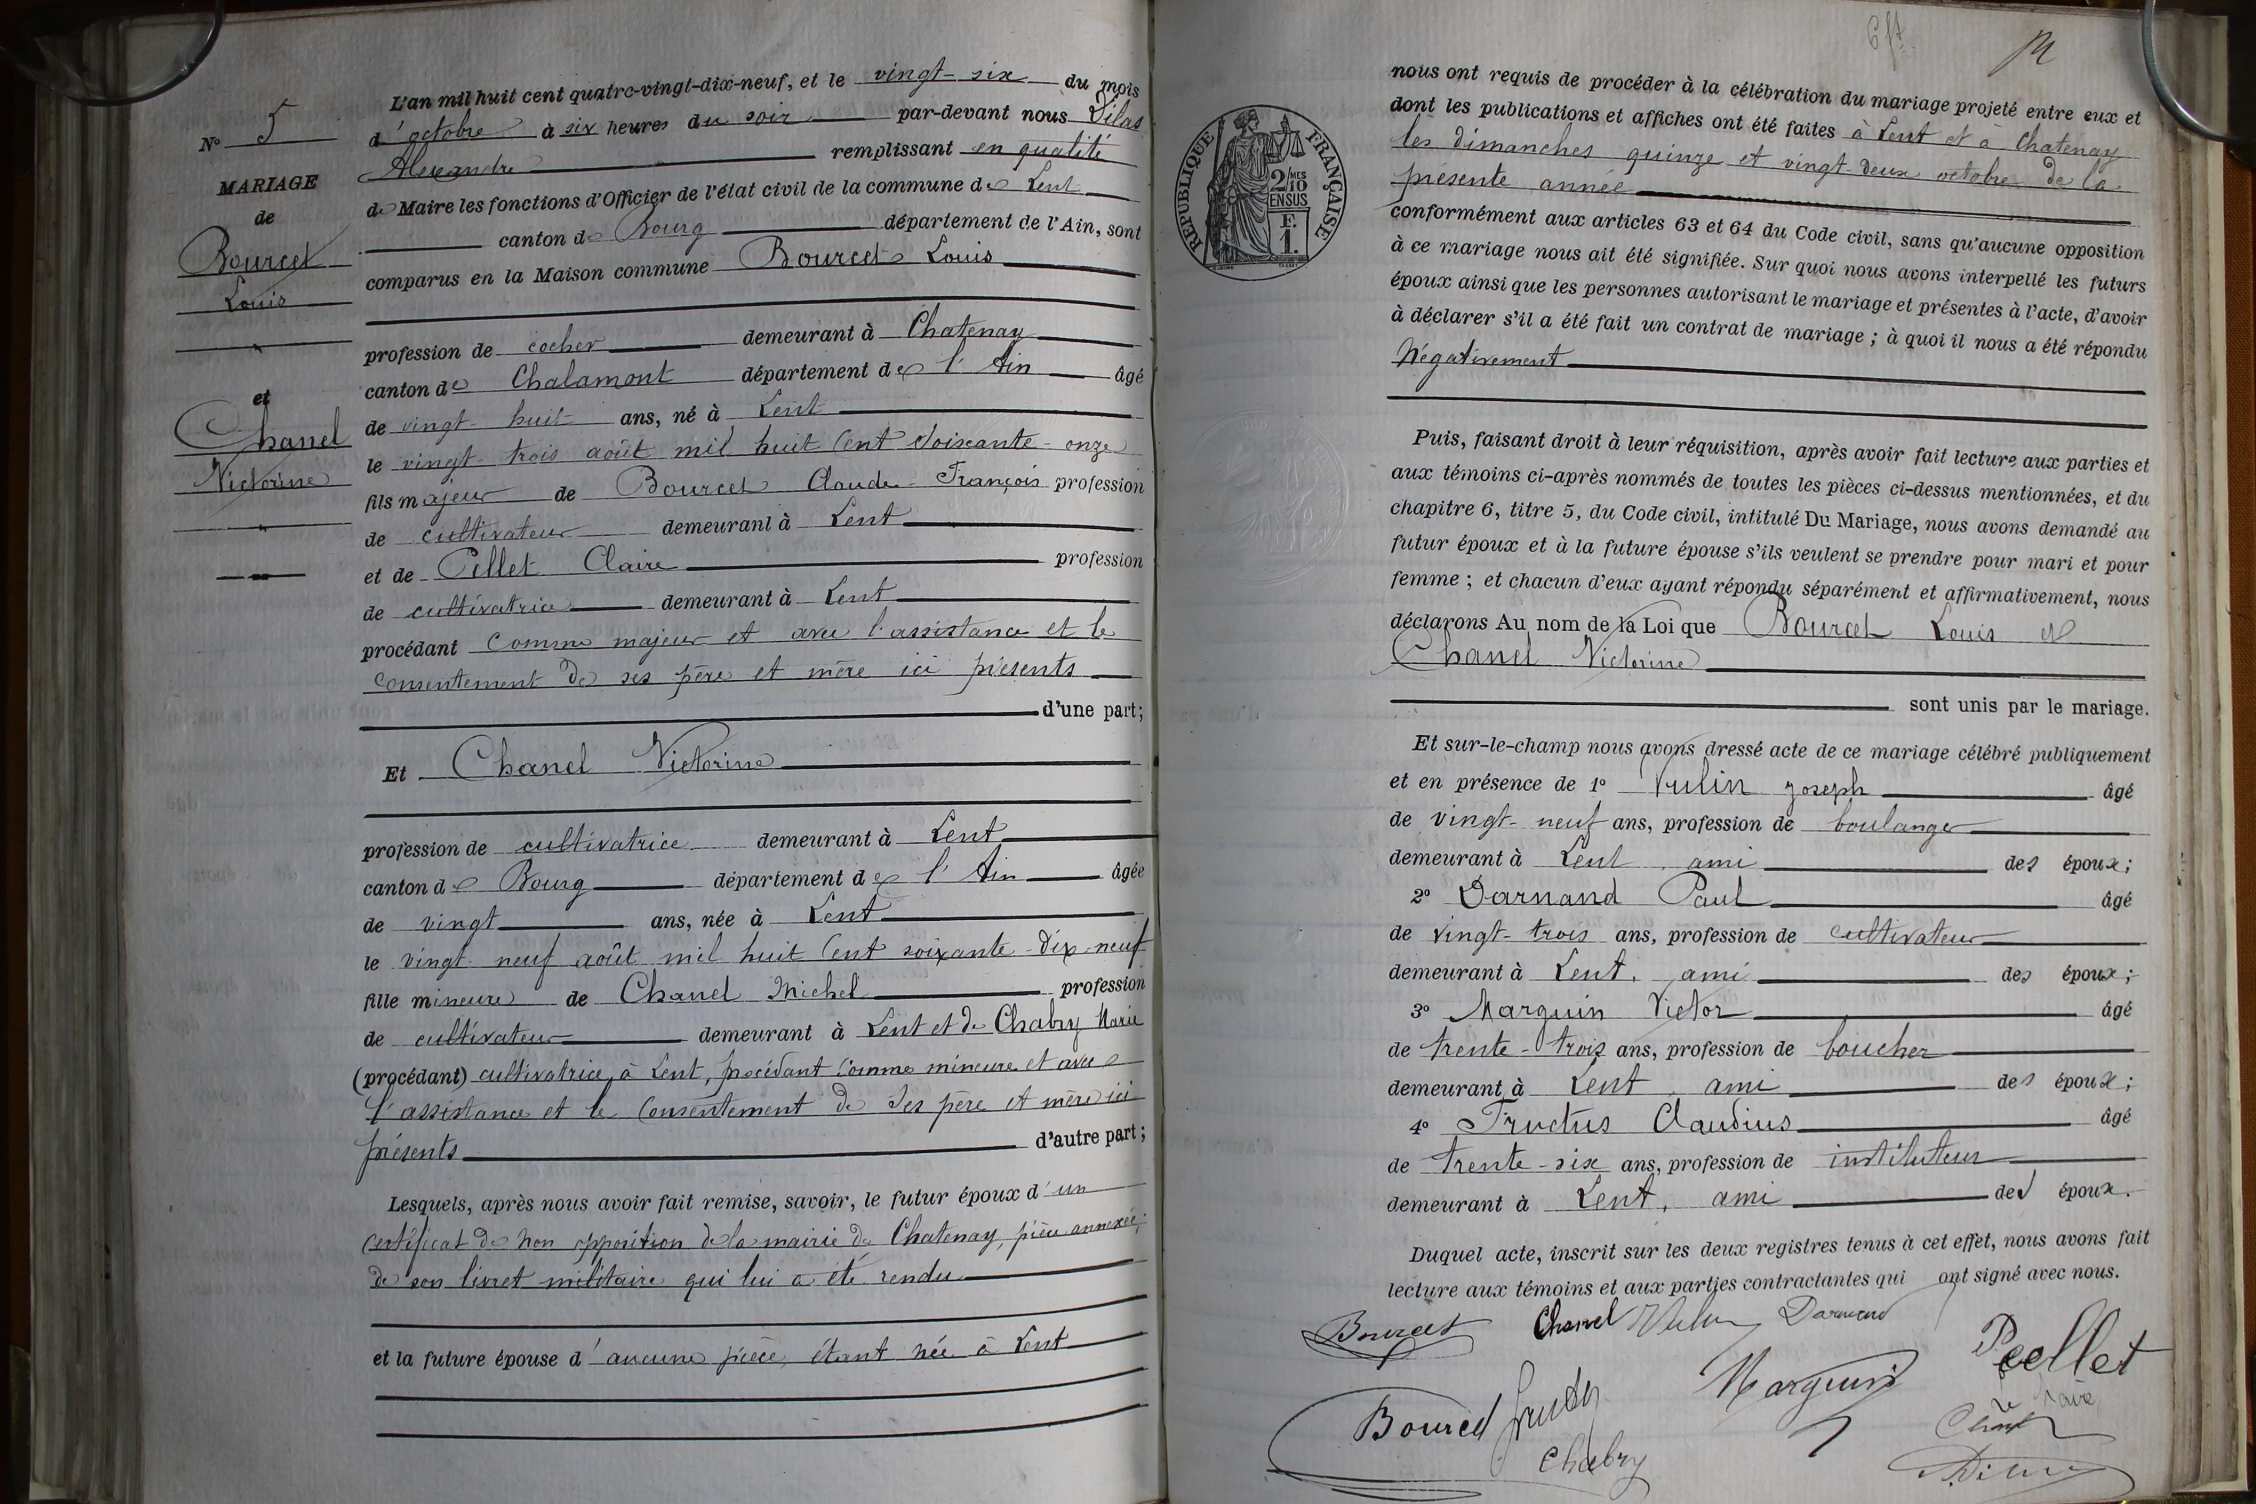 L'an mil huit cent quatre-vingt-dix-neuf, et le vingt-six du mois
d'octobre à six heures du soir par-devant nous Dilas
Alexandre remplissant en qualité
de Maire les fonctions d'Officier de l'état civil de la commune de Lent
canton de Bourg département de l'Ain, sont
comparus en la Maison commune Bourcet Louis
profession de cocher demeurant à Chatenay
canton de Chalamont département de l'Ain âgé
de vingt-huit ans, né à Lent
le vingt-trois août mil huit cent soixante-onze
fils majeur de Bourcet Claude-François profession
de cultivateur demeurant à Lent
et de Pellet Claire profession
de cultivatrice demeurant à Lent
procédant comme majeur et avec l'assistance et le
consentement de ses père et mère ici présents
d'une part;
Et Chanel Victorine
profession de cultivatrice demeurant à Lent
canton de Bourg département de l'Ain âgée
de vingt ans, née à Lent
le vingt-neuf août mil huit cent soixante-dix-neuf
fille mineure de Chanel Michel profession
de cultivateur demeurant à Lent et de Chabry Marie
(procédant) cultivatrice à Lent, procédant comme mineure et avec
l'assistance et le consentement de ses père et mère ici
présents d'autre part;
Lesquels, après nous avoir fait remise, savoir, le futur époux d'un
certificat de non opposition de la mairie de Chatenay, pièce annexée;
de son livret militaire qui lui a été rendu
et la future épouse d'aucune pièce, étant née à Lent
No 5
MARIAGE
de
Bourcet
Louis
et
Chanel
Victorine
RÉPUBLIQUE FRANÇAISE
2/10 MES
EN SUS
F.
1.
nous ont requis de procéder à la célébration du mariage projeté entre eux et
dont les publications et affiches ont été faites à Lent et à Chatenay
les dimanches quinze et vingt-deux octobre de la
présente année
conformément aux articles 63 et 64 du Code civil, sans qu'aucune opposition
à ce mariage nous ait été signifiée. Sur quoi nous avons interpellé les futurs
époux ainsi que les personnes autorisant le mariage et présentes à l'acte, d'avoir
à déclarer s'il a été fait un contrat de mariage; à quoi il nous a été répondu
Négativement
Puis, faisant droit à leur réquisition, après avoir fait lecture aux parties et
aux témoins ci-après nommés de toutes les pièces ci-dessus mentionnées, et du
chapitre 6, titre 5, du Code civil, intitulé Du Mariage, nous avons demandé au
futur époux et à la future épouse s'ils veulent se prendre pour mari et pour
femme; et chacun d'eux ayant répondu séparément et affirmativement, nous
déclarons Au nom de la Loi que Bourcet Louis et
Chanel Victorine
sont unis par le mariage.
Et sur-le-champ nous avons dressé acte de ce mariage célébré publiquement
et en présence de 1º Vulin Joseph âgé
de vingt-neuf ans, profession de boulanger
demeurant à Lent, ami des époux;
2º Darnand Paul âgé
de vingt-trois ans, profession de cultivateur
demeurant à Lent, ami des époux;
3º Marguin Victor âgé
de trente-trois ans, profession de boucher
demeurant à Lent, ami des époux;
4º Fructus Claudius âgé
de trente-six ans, profession de instituteur
demeurant à Lent, ami des époux.
Duquel acte, inscrit sur les deux registres tenus à cet effet, nous avons fait
lecture aux témoins et aux parties contractantes qui ont signé avec nous.
Bourcet Chanel Vulin Darnand
Peellet
Marguin
Bourcet
Chabry